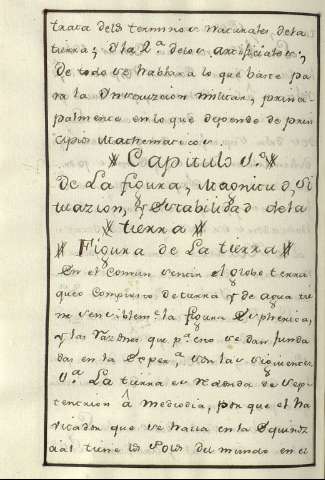 trata delos terminos Naturales dela
tierra; Y la 2.ª delos artificiales;
De todo se hablara lo que baste pa
ra la Instruzcion militar, princi
palmente en lo que depende de prin
cipios Mathematicos.
Capitulo 1.º
De La figura, Magnitud, Si
tuazion, y Estabilidad dela
tierra
Figura de La tierra
En el comun sentir el globo terra
queo compuesto de tierra y de agua tie
ne sensiblem.te la figura Espherica,
y las razones que p.ª esto se dan funda
das en la Esper.ª, son las siguientes
1.ª La tierra es redonda de sep
tentrion â mediodia, por que el ha
vitador que se halla en la Equinoz
ial tiene los Polos del mundo en el